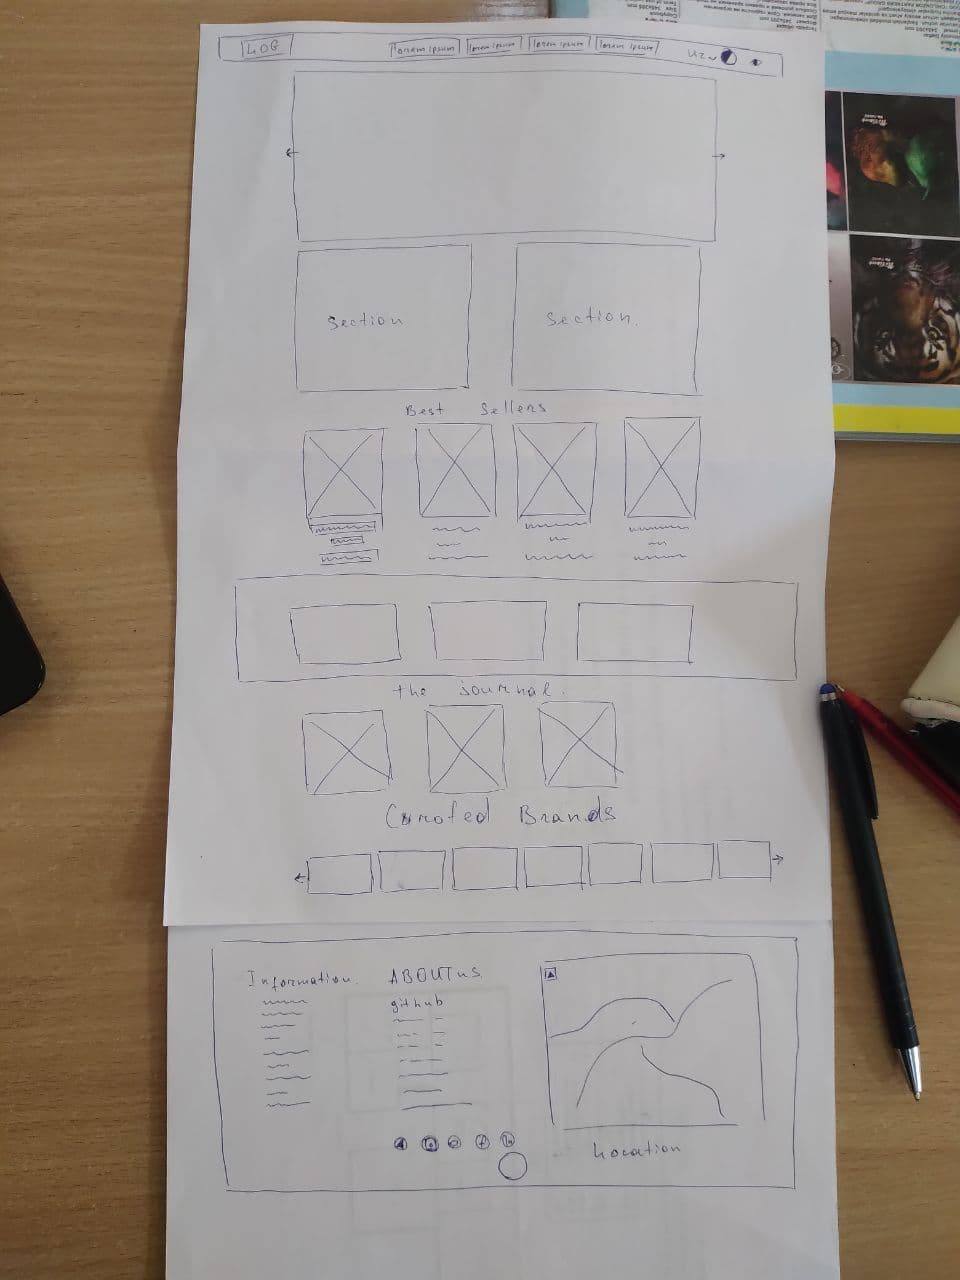 LOG
Lorem ipsum Lorem ipsum Lorem ipsum Lorem ipsum
UZ
Section
Section.
Best Sellers
the journal.
Curated Brands
Information.
ABOUT us
github
Location